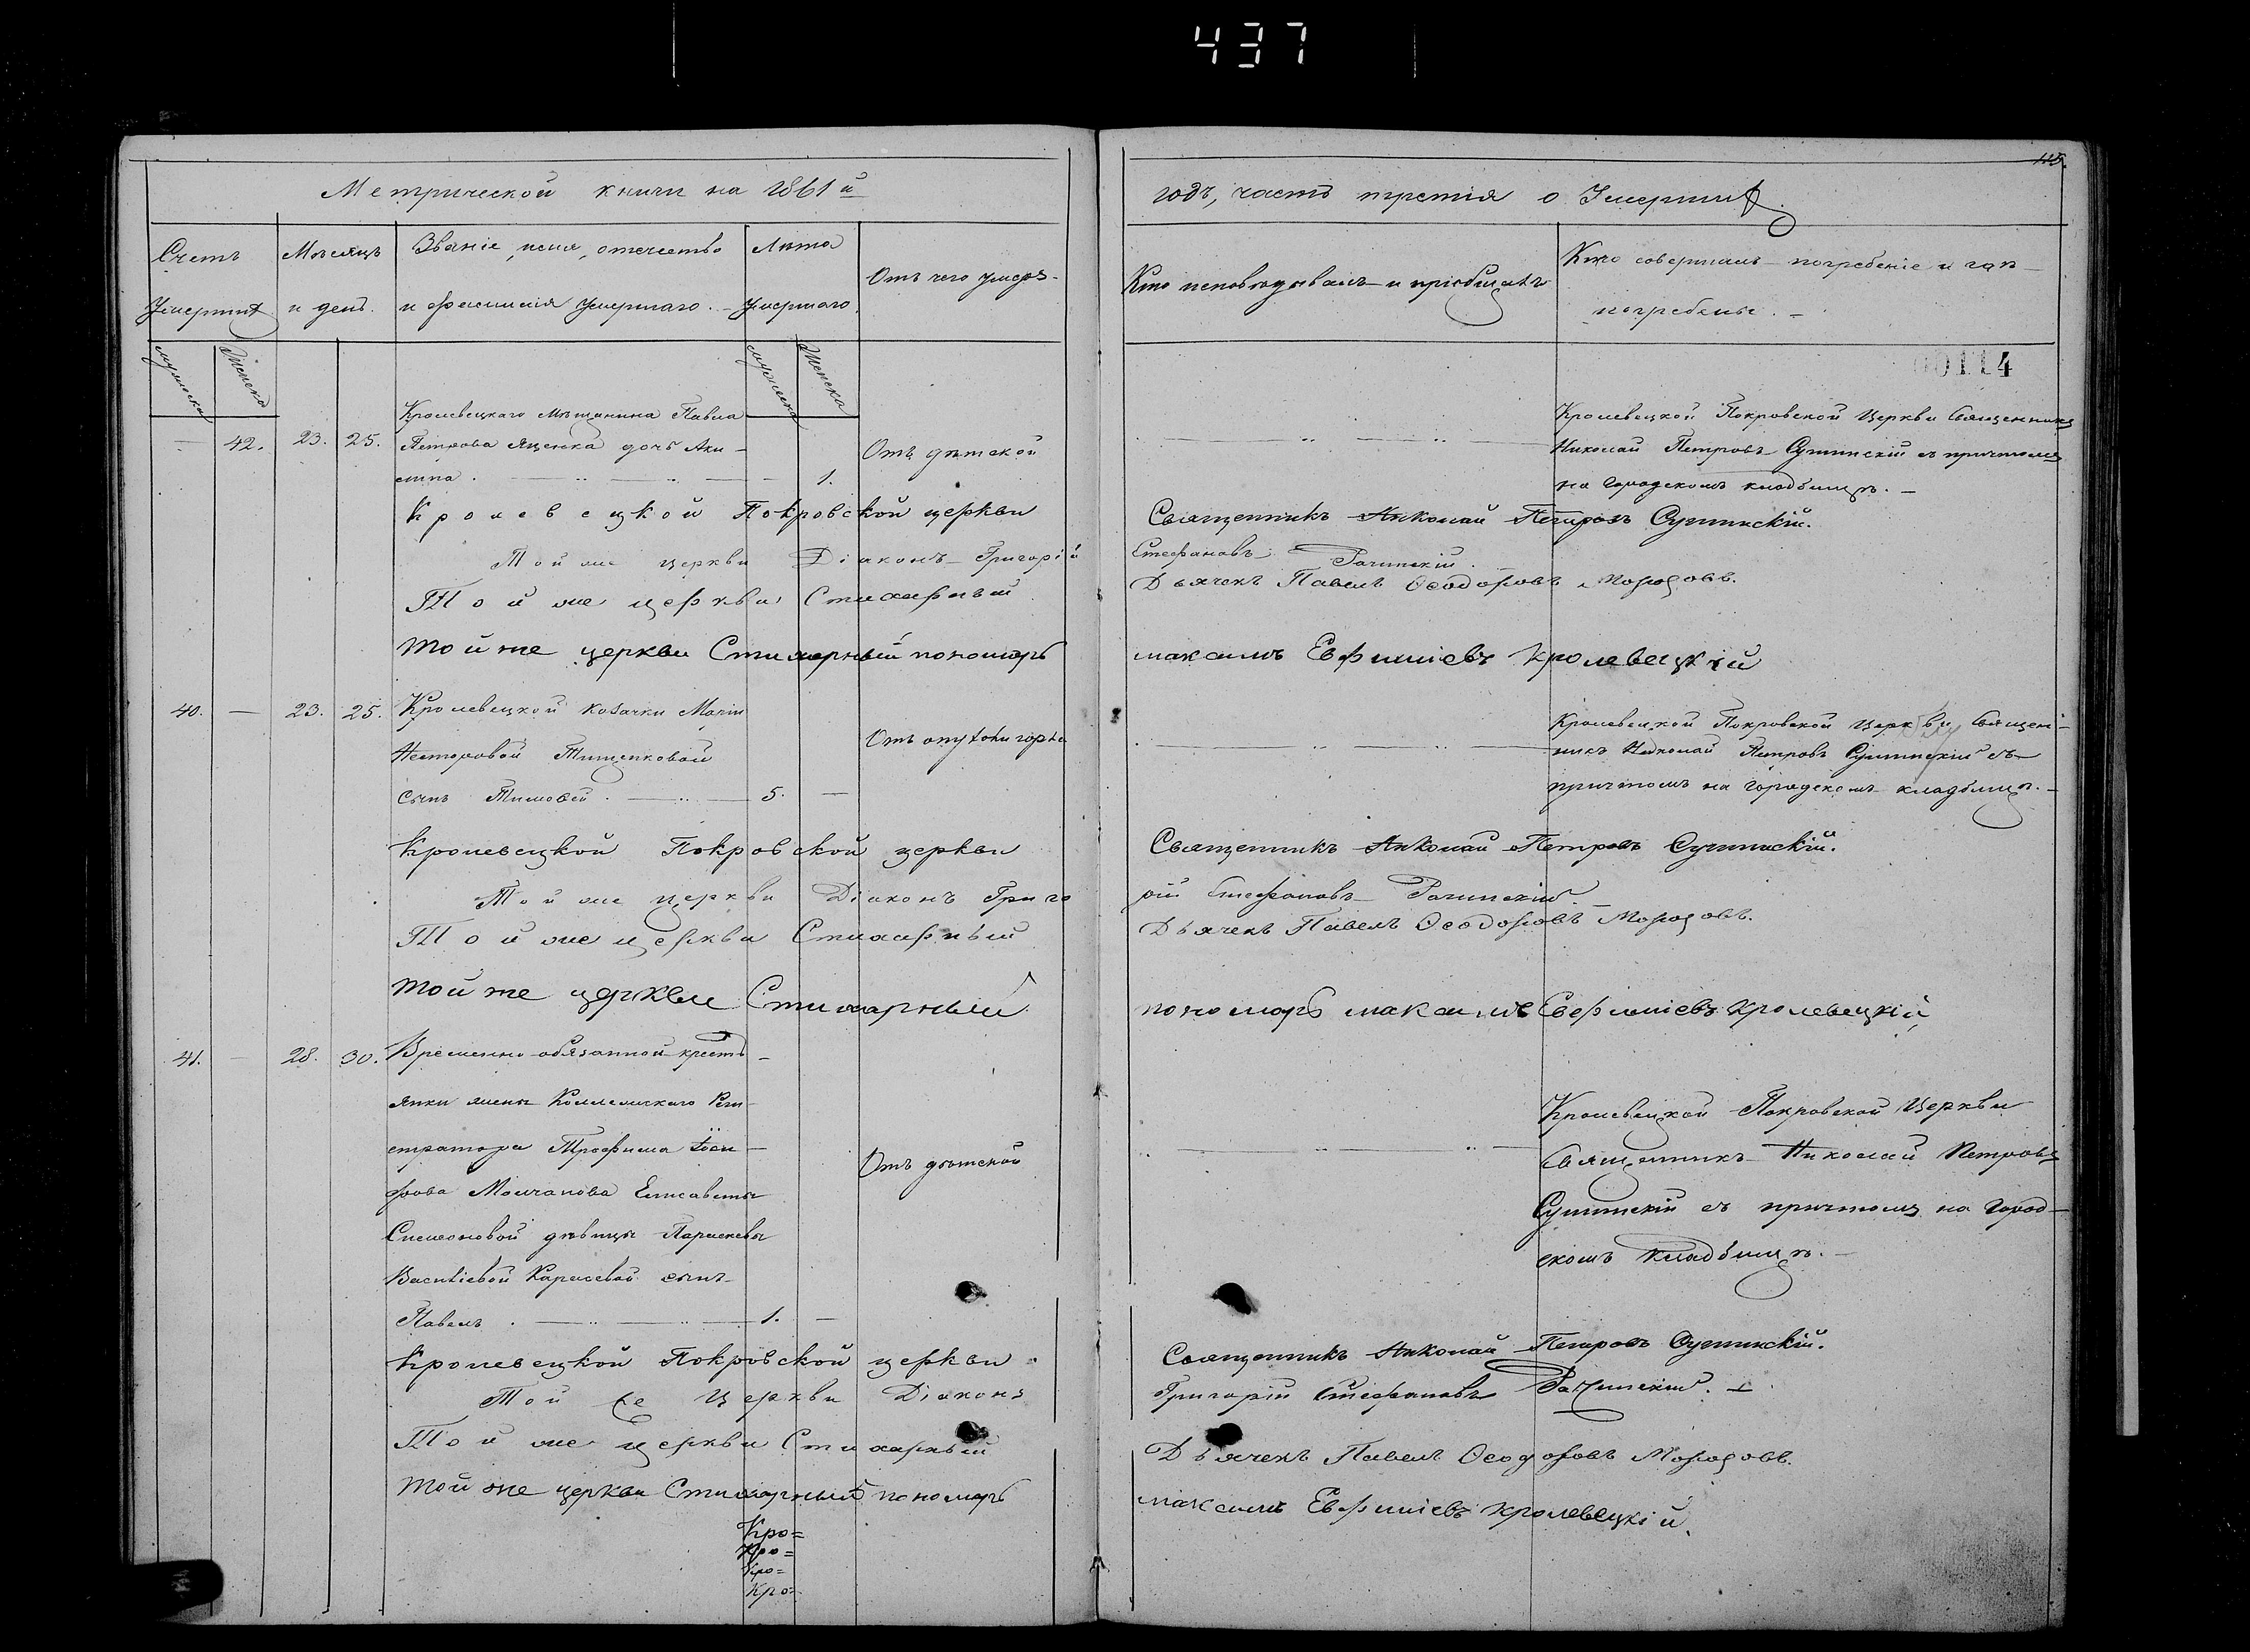 437
115.
Метрической книги на 1861й
годъ, часть третія о Умершихъ.
Счетъ Умершихъ
Мѣсяцъ и день.
Званіе, имя, отчество
и фамилія умершаго.
Лѣта Умершаго.
Отъ чего умеръ.
Кто исповѣдывалъ и пріобщалъ
Кто совершалъ погребеніе и гдѣ
погребены.
мужеска
женска
мужеска
женска
00114
— 42. 23. 25.
Кролевецкаго мѣщанина Павла
Петрова Яценка дочь Аки-
лина. 1.
Отъ дѣтской
Кролевецкой Покровской Церкви Священникъ
Николай Петровъ с причтомъ
на городскомъ кладбищѣ.
Кролевецкой Покровской церкви Священникъ Николай Петровъ
Той же церкви Діаконъ Григорій Стефановъ
Той же церкви Стихарный Дьячекъ Павелъ Ѳеодоровъ
Той же церкви Стихарный пономарь максимъ Евфиміевъ кролевецкій
40. — 23. 25.
Кролевецкой козачки Маріи
Несторовой Тищенковой
сынъ Тимоѳей. 5. —
Отъ опухоли горла
Кролевецкой Покровской Церкви Священ-
никъ Николай Петровъ съ
причтомъ на городскомъ кладбищѣ.
Кролевецкой Покровской церкви Священникъ Николай Петровъ
Той же церкви Діаконъ Григорій Стефановъ
Той же церкви Стихарный Дьячекъ Павелъ Ѳеодоровъ
Той же церкви Стихарный пономарь максимъ Евфиміевъ кролевецкій
41. — 28. 30.
Временно-обязанной кресть-
янки жены Коллежскаго Реги-
стратора Трофима Іоси-
фова Молчанова Елисаветы
Симеоновой дѣвицы
Василіевой Карасевой сынъ
Павелъ. 1. —
Отъ дѣтской
Кролевецкой Покровской Церкви
Священникъ Николай Петровъ
съ причтомъ на город-
скомъ кладбищѣ.
Кролевецкой Покровской церкви Священникъ Николай Петровъ
Той же Церкви Діаконъ Григорій Стефановъ
Той же церкви Стихарный Дьячекъ Павелъ Ѳеодоровъ
Той же церкви Стихарный пономарь максимъ Евфиміевъ кролевецкій.
Кро=
Кро=
Кро=
Кро=